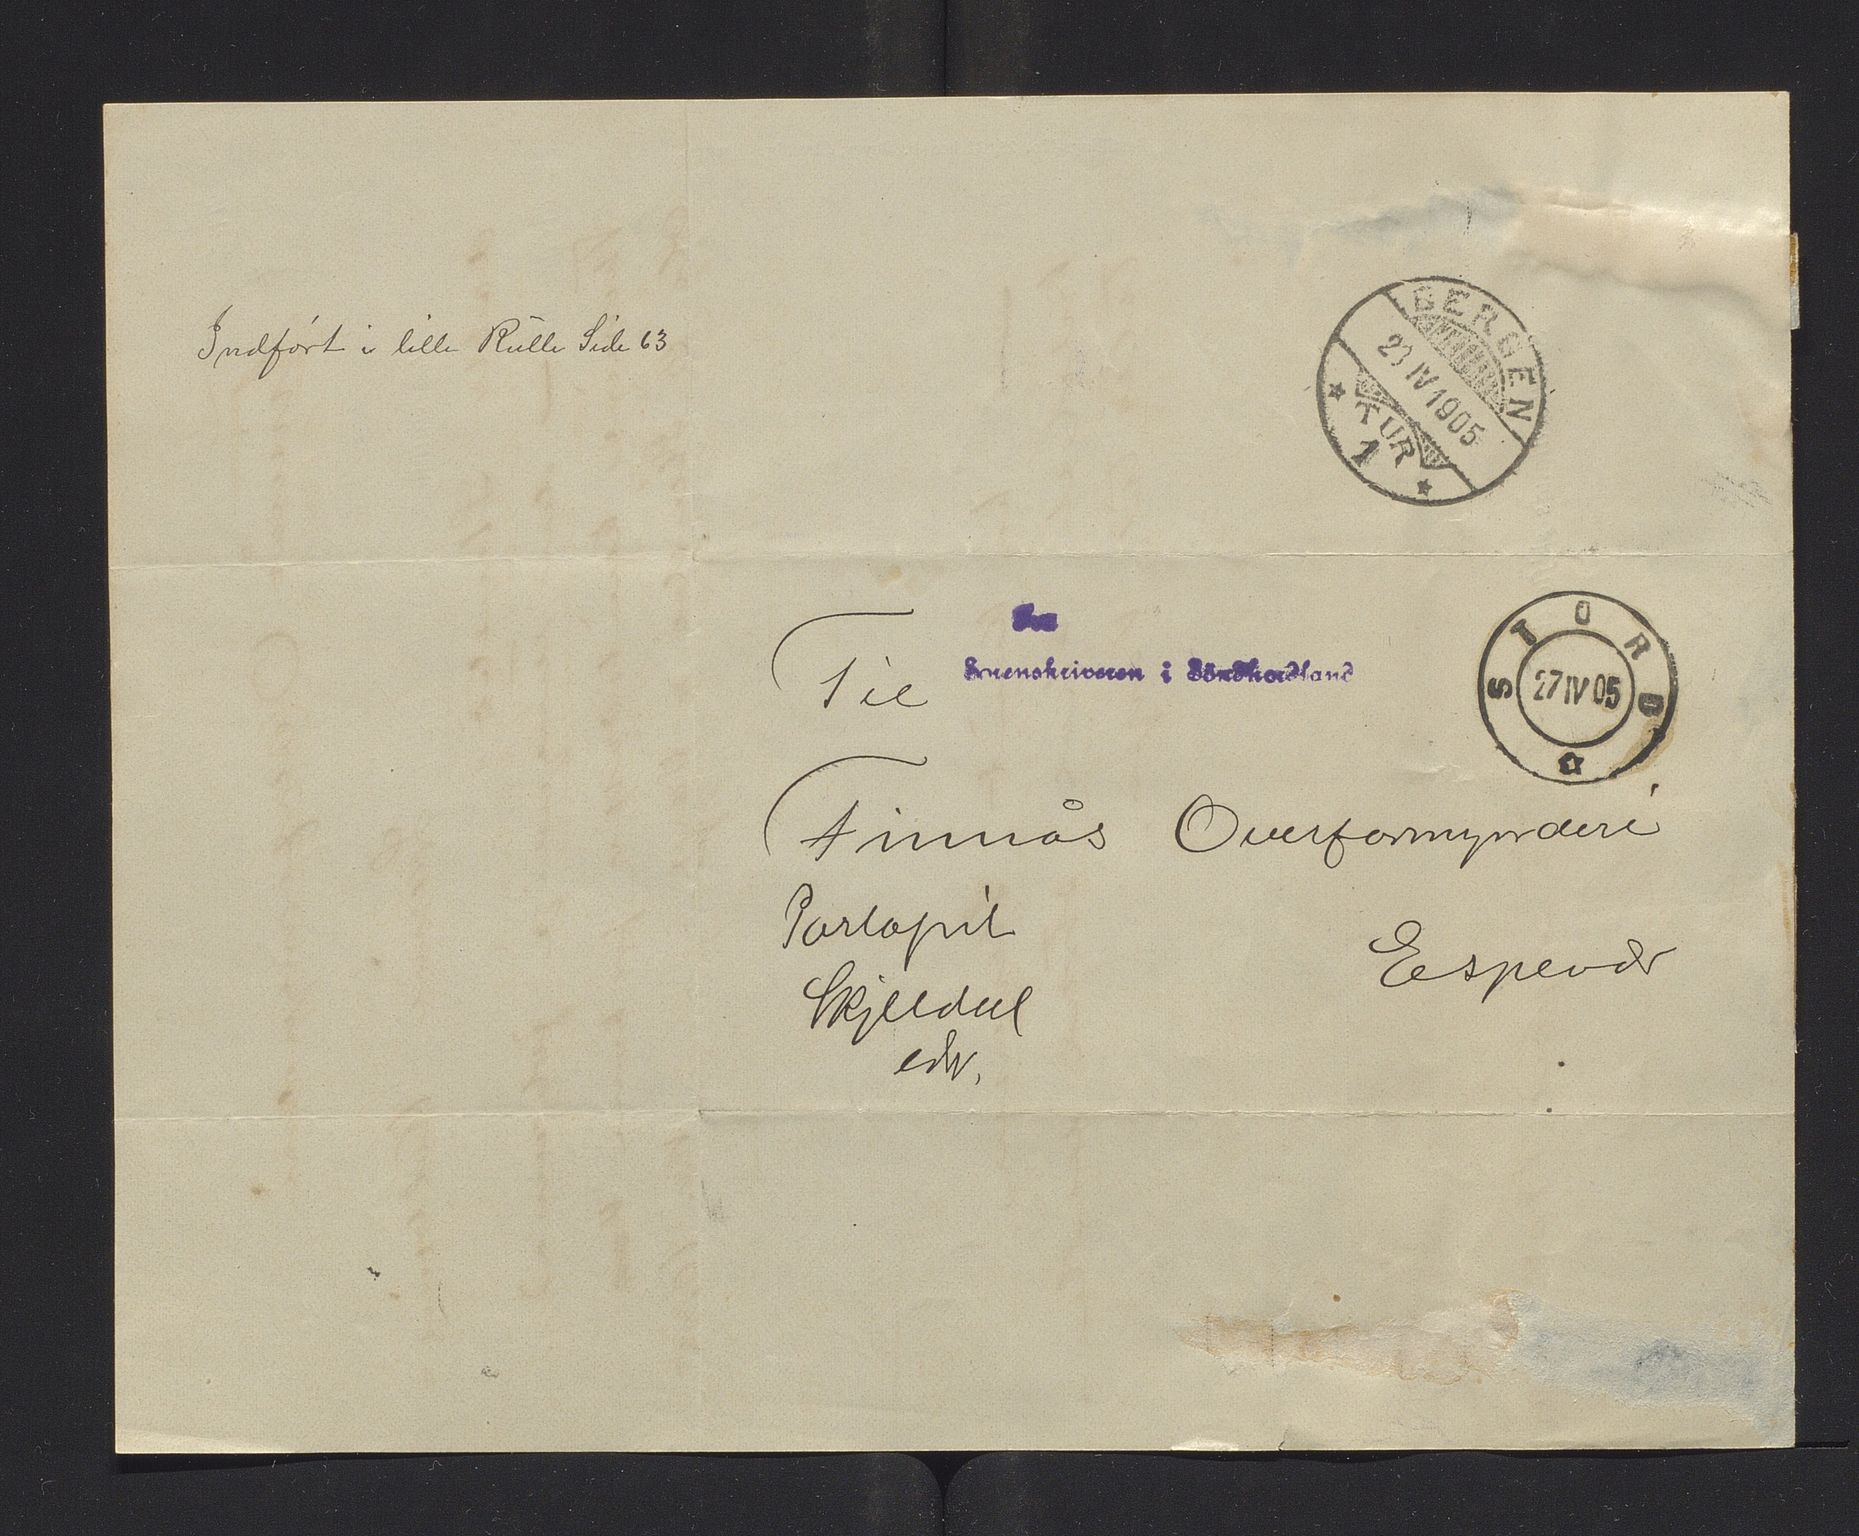 Indført i lille Rulle Side 63
BERGEN
IV 1905
TUR
1
STORD
27 IV 05
Fra
Sorenskriveren i Söndhordland
Til
Finnås Overformynderi
Portofrit
Espevær
Skjelldal
edv.